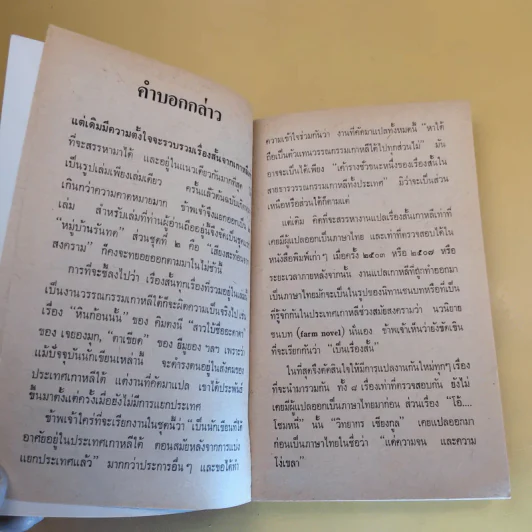 คำบอกกล่าว
แต่เดิมมีความตั้งใจจะรวบรวมเรื่องสั้นจากเกาหลี
ที่จะสรรหามาได้ และอยู่ในแนวเดียวกันมากที่สุด
เป็นรูปเล่มเพียงเล่มเดียว ครั้นแล้วต้นฉบับ
เกินกว่าความคาดหมายมาก ข้าพเจ้าจึงแยกออกเป็น
เล่ม สำหรับเล่มที่ท่านผู้อ่านถืออยู่นี้จึงจัดเป็นชุด
"หมู่บ้านรันทด" ส่วนชุดที่ ๒ คือ "เสียงสะท้อนจาก
สงคราม" ก็คงจะทยอยออกตามมาในไม่ช้านี้
การที่จะชี้ลงไปว่า เรื่องสั้นทุกเรื่องที่รวมอยู่ในเล่มนี้
เป็นงานวรรณกรรมเกาหลีใต้ก็จะผิดความเป็นจริงไป เช่น
เรื่อง "หินก้อนนั้น" ของ คิมดงนี "สาวใบ้ชื่ออะดาดา"
ของ เจยองมุก, "ตาเซียด" ของ ยีมูยอง ฯลฯ เพราะว่า
แม้ปัจจุบันนักเขียนเหล่านี้ จะดำรงตนอยู่ในสังคมของ
ประเทศเกาหลีใต้ แต่งานที่คัดมาแปล เขาได้ประพันธ์
ขึ้นมาตั้งแต่ครั้งเมื่อยังไม่มีการแยกประเทศ
ข้าพเจ้าใคร่ที่จะเรียกงานในชุดนี้ว่า "เป็นนักเขียนที่ได้
อาศัยอยู่ในประเทศเกาหลีใต้ ตอนสมัยหลังจากการแบ่ง
แยกประเทศแล้ว" มากกว่าประการอื่นๆ และขอได้ทำ
ความเข้าใจร่วมกันว่า งานที่คัดมาแปลทั้งหมดนี้ "หาได้
ถือเป็นตัวแทนวรรณกรรมเกาหลีใต้ไปทุกส่วนไม่" มัน
อาจจะเป็นได้เพียง "เค้ารางชัวขณะหนึ่งของเรื่องสั้นใน
สายธารวรรณกรรมเกาหลีทั้งประเทศ" มิว่าจะเป็นส่วน
เหนือหรือส่วนใต้ก็ตามแต่
แต่เดิม คิดที่จะสรรหางานแปลเรื่องสั้นเกาหลีเท่าที่
เคยมีผู้แปลออกเป็นภาษาไทย และเท่าที่ตรวจสอบได้ใน
หนังสือพิมพ์เก่าๆ เมื่อครั้ง ๒๕๐๓ หรือ ๒๕๐๗ หรือ
ระยะเวลาภายหลังจากนั้น งานแปลเกาหลีที่ถูกถ่ายออกมา
เป็นภาษาไทยมักจะเป็นในรูปของนิทานชนบทหรือที่เป็น
ที่รู้จักกันในประเทศเกาหลีช่วงสมัยสงครามว่า นวนิยาย
ชนบท (farm novel) นั่นเอง ข้าพเจ้าเห็นว่ายังขัดเขิน
ที่จะเรียกกันว่า "เป็นเรื่องสั้น"
ในที่สุดจึงตัดสินใจให้มีการแปลงานกันใหม่ทุกๆ เรื่อง
ที่จะนำมารวมกัน ทั้ง ๘ เรื่องเท่าที่ตรวจสอบกัน ยังไม่
เคยมีผู้แปลออกเป็นภาษาไทยมาก่อน ส่วนเรื่อง "โอ้....
โชมหนี" นั้น "วิทยากร เชียงกูล" เคยแปลออกมา
ก่อนเป็นภาษาไทยในชื่อว่า "แด่ความจน และความ
โง่เขลา"